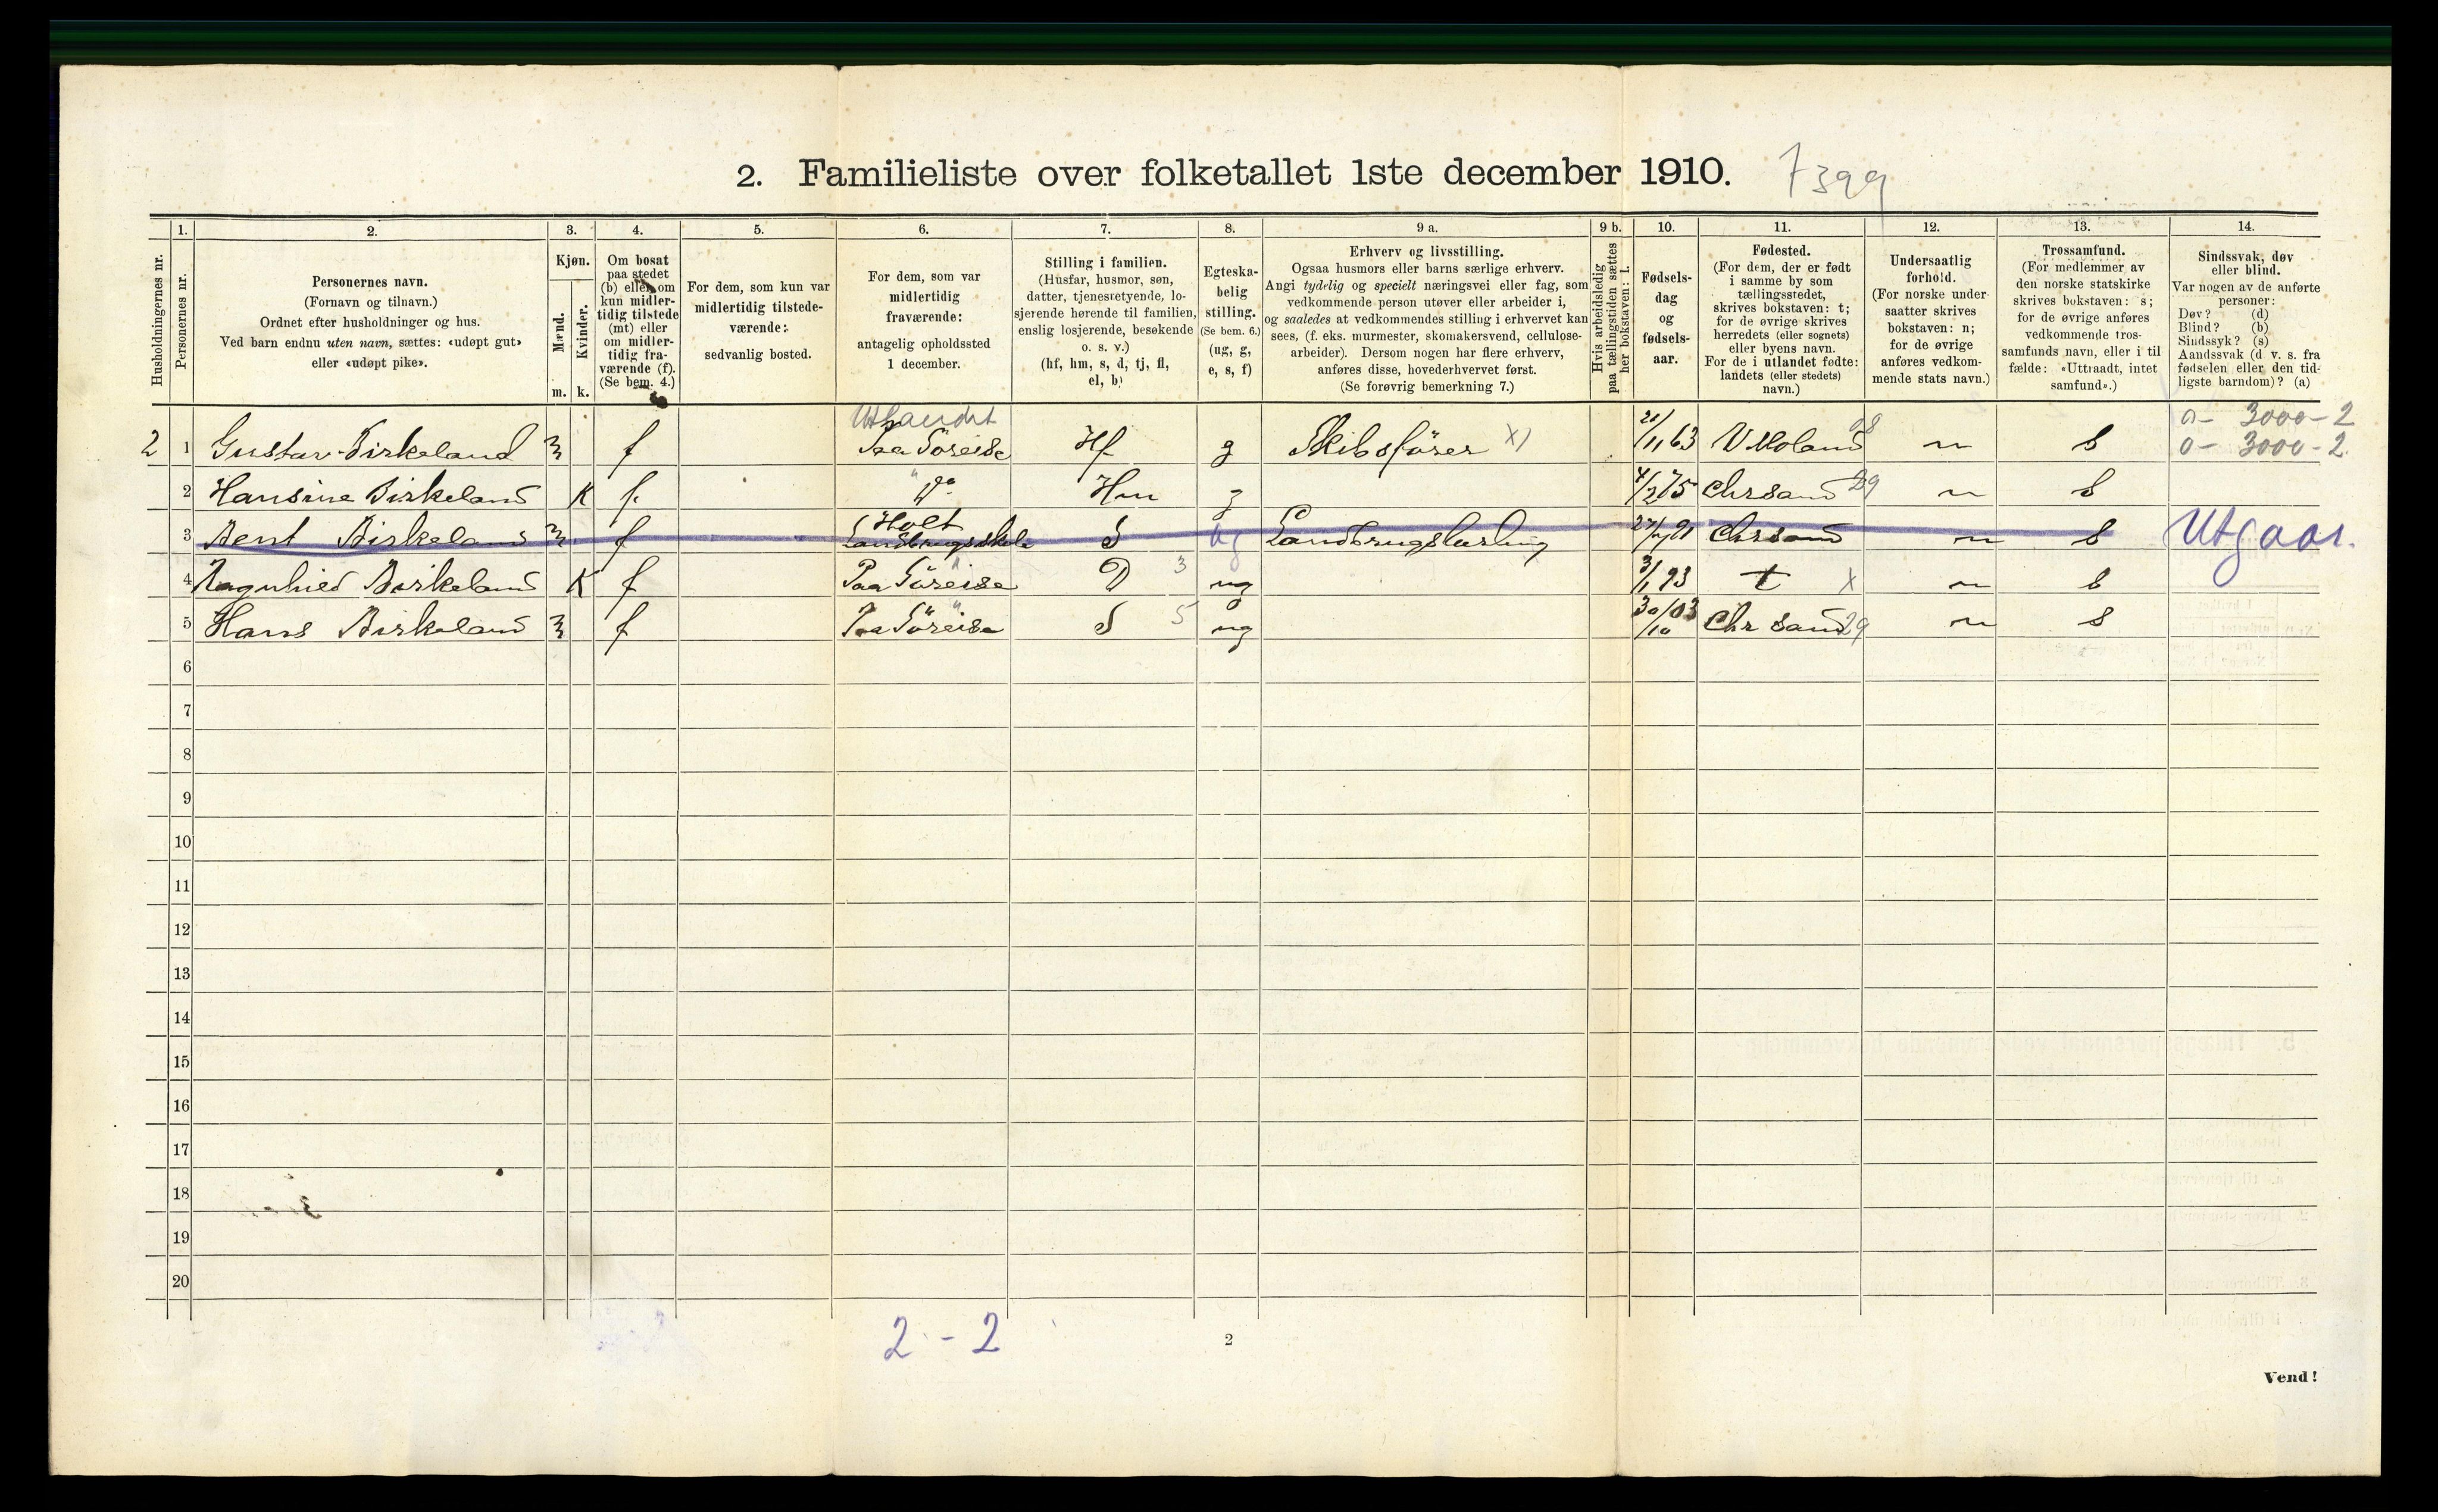 2. Familieliste over folketallet 1ste december 1910. 7399
Husholdningernes nr.
1. Personernes nr.
2. Personernes navn.
(Fornavn og tilnavn.)
Ordnet efter husholdninger og hus.
Ved barn endnu uten navn, sættes: «udøpt gut»
eller «udøpt pike».
3. Kjøn.
Mænd. m.
Kvinder. k.
4. Om bosat
paa stedet
(b) eller om
kun midler-
tidig tilstede
(mt) eller
om midler-
tidig fra-
værende (f).
(Se bem. 4.)
5. For dem, som kun var
midlertidig tilstede-
værende:
sedvanlig bosted.
6. For dem, som var
midlertidig
fraværende:
antagelig opholdssted
1 december.
7. Stilling i familien.
(Husfar, husmor, søn,
datter, tjenestetyende, lo-
sjerende hørende til familien,
enslig losjerende, besøkende
o. s. v.)
(hf, hm, s, d, tj, fl,
el, b)
8. Egteska-
belig
stilling.
(Se bem. 6.)
(ug, g,
e, s, f)
9 a. Erhverv og livsstilling.
Ogsaa husmors eller barns særlige erhverv.
Angi tydelig og specielt næringsvei eller fag, som
vedkommende person utøver eller arbeider i,
og saaledes at vedkommendes stilling i erhvervet kan
sees, (f. eks. murmester, skomakersvend, cellulose-
arbeider). Dersom nogen har flere erhverv,
anføres disse, hovederhvervet først.
(Se forøvrig bemerkning 7.)
9 b. Hvis arbeidsledig
paa tællingstiden sættes
her bokstaven: l.
10. Fødsels-
dag
og
fødsels-
aar.
11. Fødested.
(For dem, der er født
i samme by som
tællingsstedet,
skrives bokstaven: t;
for de øvrige skrives
herredets (eller sognets)
eller byens navn.
For de i utlandet fødte:
landets (eller stedets)
navn.)
12. Undersaatlig
forhold.
(For norske under-
saatter skrives
bokstaven: n;
for de øvrige
anføres vedkom-
mende stats navn.)
13. Trossamfund.
(For medlemmer av
den norske statskirke
skrives bokstaven: s;
for de øvrige anføres
vedkommende tros-
samfunds navn, eller i til-
fælde: «Uttraadt, intet
samfund».)
14. Sindssvak, døv
eller blind.
Var nogen av de anførte
personer:
Døv? (d)
Blind? (b)
Sindssyk? (s)
Aandssvak (d. v. s. fra
fødselen eller den tid-
ligste barndom)? (a)
Utlandet 0- 3000-2
2 1 Gustav Birkeland M f Paa Söreise Hf g Skibsförer X) 21/11 63 V. Moland 28 n s 0- 3000-2.
2 Hansine Birkeland K f. " Do Hm g 4/2 75 Chrsand 29 n s
3 Bent Birkeland M f Holt Landbrugsskole S ug Landbrugslærling Chrsand n s Utgaar.
4 Ragnhild Birkeland K f Paa Söreise D 3 ug 3/1 93 t X n s
5 Hans Birkeland M f Paa Söreise S 5 ug 30/10 03 Chrsand 29 n s
6
7
8
9
10
11
12
13
14
15
16
17
18
19
20
2 - 2
2
Vend!